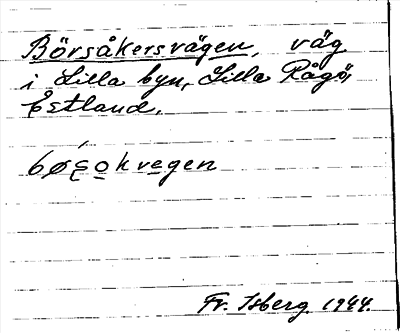 Börsåkersvägen, väg
i Lilla byn, Lilla Rågö,
Estland.
Fr. Isberg 1944.